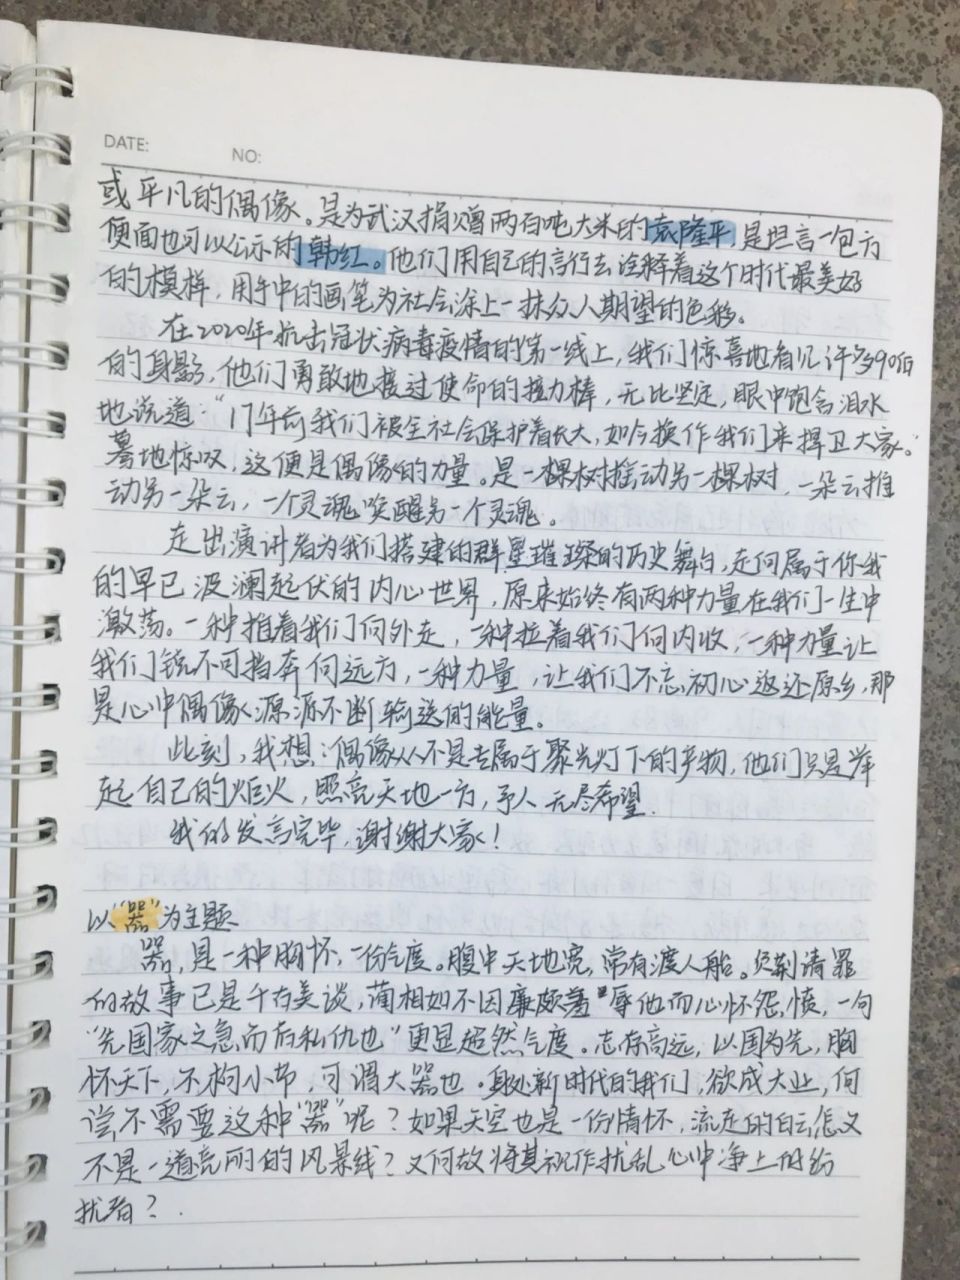 DATE:
NO:
或平凡的偶像。是为武汉捐赠两百吨大米的袁隆平,是坦言一包方
便面也可以公示的韩红。他们用自己的言行去诠释着这个时代最美好
的模样,用手中的画笔为社会涂上一抹众人期望的色彩。
在2020年抗击冠状病毒疫情的第一线上,我们惊喜地看见许多90后
的身影,他们勇敢地接过使命的接力棒,无比坚定,眼中饱含泪水
地说道:“17年前我们被全社会保护着长大,如今换作我们来捍卫大家。”
蓦地惊叹,这便是偶像的力量。是一棵树摇动另一棵树,一朵云推
动另一朵云,一个灵魂唤醒另一个灵魂。
走出演讲者为我们搭建的群星璀璨的历史舞台,走向属于你我
的早已波澜起伏的内心世界,原来始终有两种力量在我们一生中
激荡。一种推着我们向外走,一种拉着我们向内收,一种力量让
我们锐不可挡奔向远方,一种力量,让我们不忘初心返还原乡,那
是心中偶像源源不断输送的能量。
此刻,我想:偶像从不是专属于聚光灯下的产物,他们只是举
起自己的炬火,照亮天地一方,予人无尽希望.
我的发言完毕,谢谢大家!
以“器”为主题
器,是一种胸怀,一份气度。腹中天地宽,常有渡人船。负荆请罪
的故事已是千古美谈,蔺相如不因廉颇羞辱他而心怀怨愤,一句
“先国家之急而后私仇也”更显超然气度。志存高远,以国为先,胸
怀天下,不拘小节,可谓大器也.身处新时代的我们,欲成大业,何
尝不需要这种“器”呢?如果天空也是一份情怀,流走的白云怎又
不是一道亮丽的风景线?又何故将其视作扰乱心中净土的纷
扰者?.